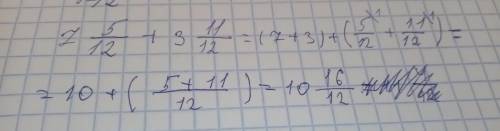 7 5/12 + 3 11/12 = (7+3) + (5/12 + 11/12) =
= 10 + (5 + 11/12) = 10 16/12